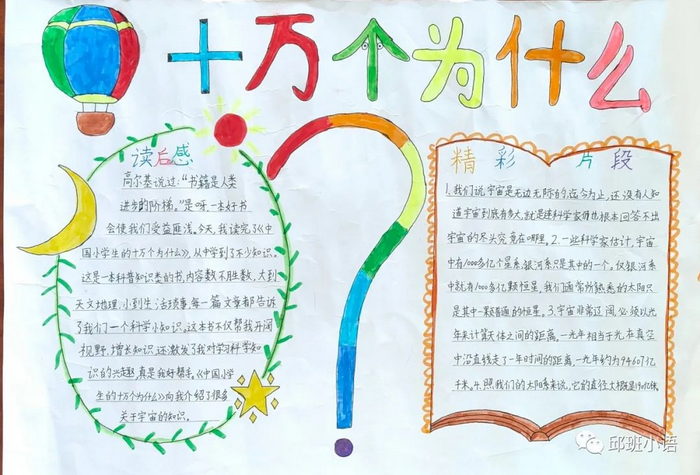 十万个为什么
读后感
高尔基说过：“书籍是人类
进步的阶梯。”是呀，一本好书
会使我们受益匪浅。今天，我读完了《中
国小学生的十万个为什么》，从中学到了不少知识。
这是一本科普知识类的书，内容数不胜数，大到
天文地理，小到生活琐事，每一篇文章都告诉
了我们一个科学小知识。这本书不仅帮我开阔
视野，增长知识，还激发了我对学习科学知
识的兴趣，真是我好帮手。《中国小学
生的十万个为什么》向我介绍了很多
关于宇宙的知识。
精彩片段
1.我们说，宇宙是无边无际的，迄今为止，还没有人知
道宇宙到底有多大，就是连科学家们也根本回答不出
宇宙的尽头究竟在哪里。2.一些科学家估计，宇宙
中有1000多亿个星系，银河系只是其中的一个。仅银河系
中就有1000多亿颗恒星，我们通常所熟悉的太阳只
是其中一颗普通的恒星。3.宇宙非常辽阔，必须以光
年来计算天体之间的距离，一光年相当于光，在真空
中沿直线走了一年时间的距离，一光年约为94607亿
千米。4.照我们的太阳系来说，它的直径大概是120亿千米
邱班小语